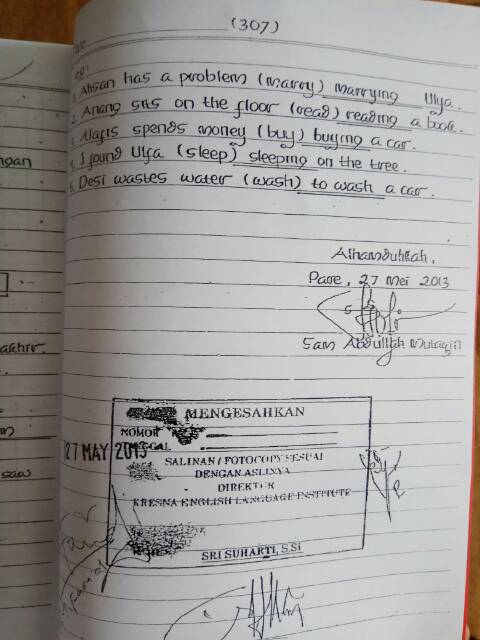 (307)
eg:
1. Ahsan has a problem (marry) marrying Ulya.
2. Anang sits on the floor (read) reading a book.
3. Nafis spends money (buy) buying a car.
4. I found Ulfa (sleep) sleeping on the tree.
5. Desi wastes water (wash) to wash a car.
Alhamdulillah.
Pare, 27 Mei 2013
Sam Abdullah
MENGESAHKAN
NOMOR
27 MAY 2013
SALINAN / FOTOCOPY SESUAI
DENGAN ASLINYA
DIREKTUR
KRESNA ENGLISH LANGUAGE INSTITUTE
SRI SUHARTI, S.Si